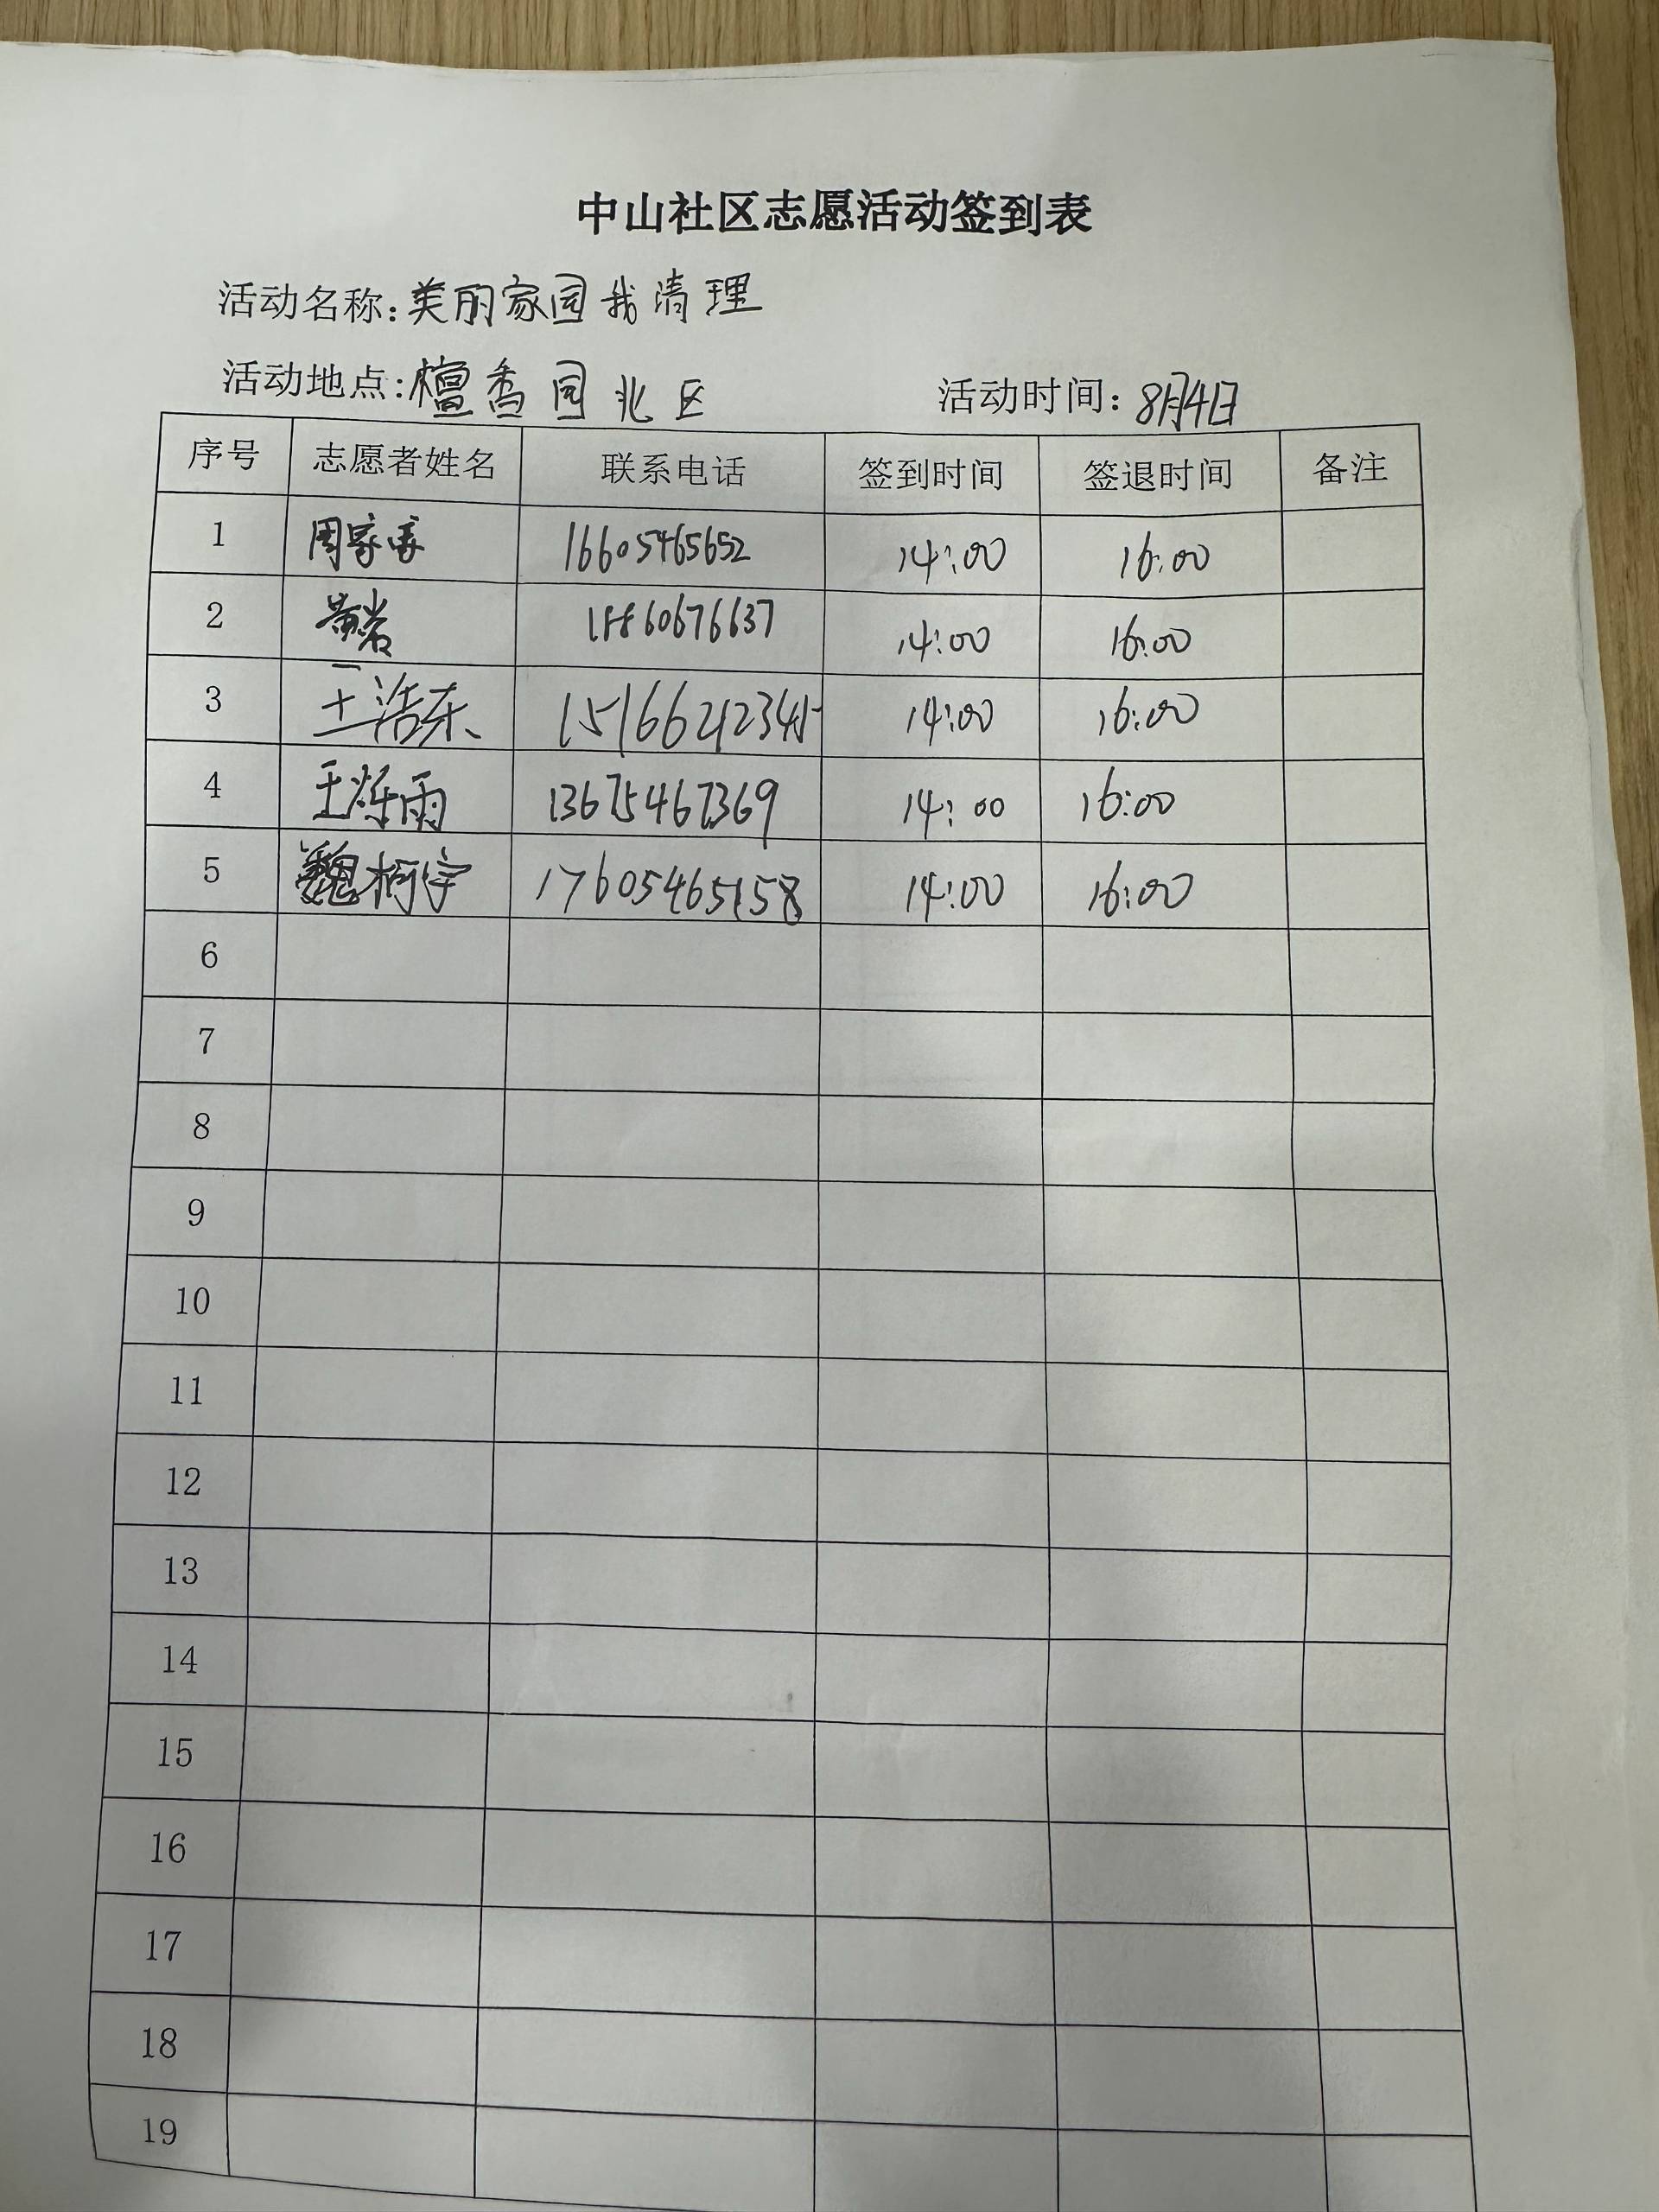 中山社区志愿活动签到表
活动名称:美丽家园我清理
活动地点:檀香园北区 活动时间:8月4日
序号 志愿者姓名 联系电话 签到时间 签退时间 备注
1 周家豪 16605465652 14:00 16:00
2 黄岩 18860676637 14:00 16:00
3 王浩东 15166212345 14:00 16:00
4 王烁雨 13675467369 14:00 16:00
5 魏桐宇 17605465158 14:00 16:00
6
7
8
9
10
11
12
13
14
15
16
17
18
19